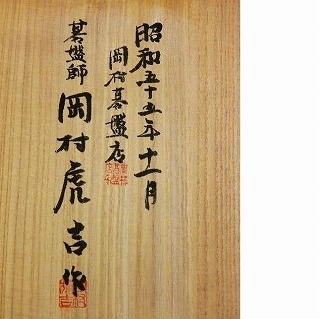 昭和五十五年十一月
岡村碁盤店
碁盤師 岡村虎吉作